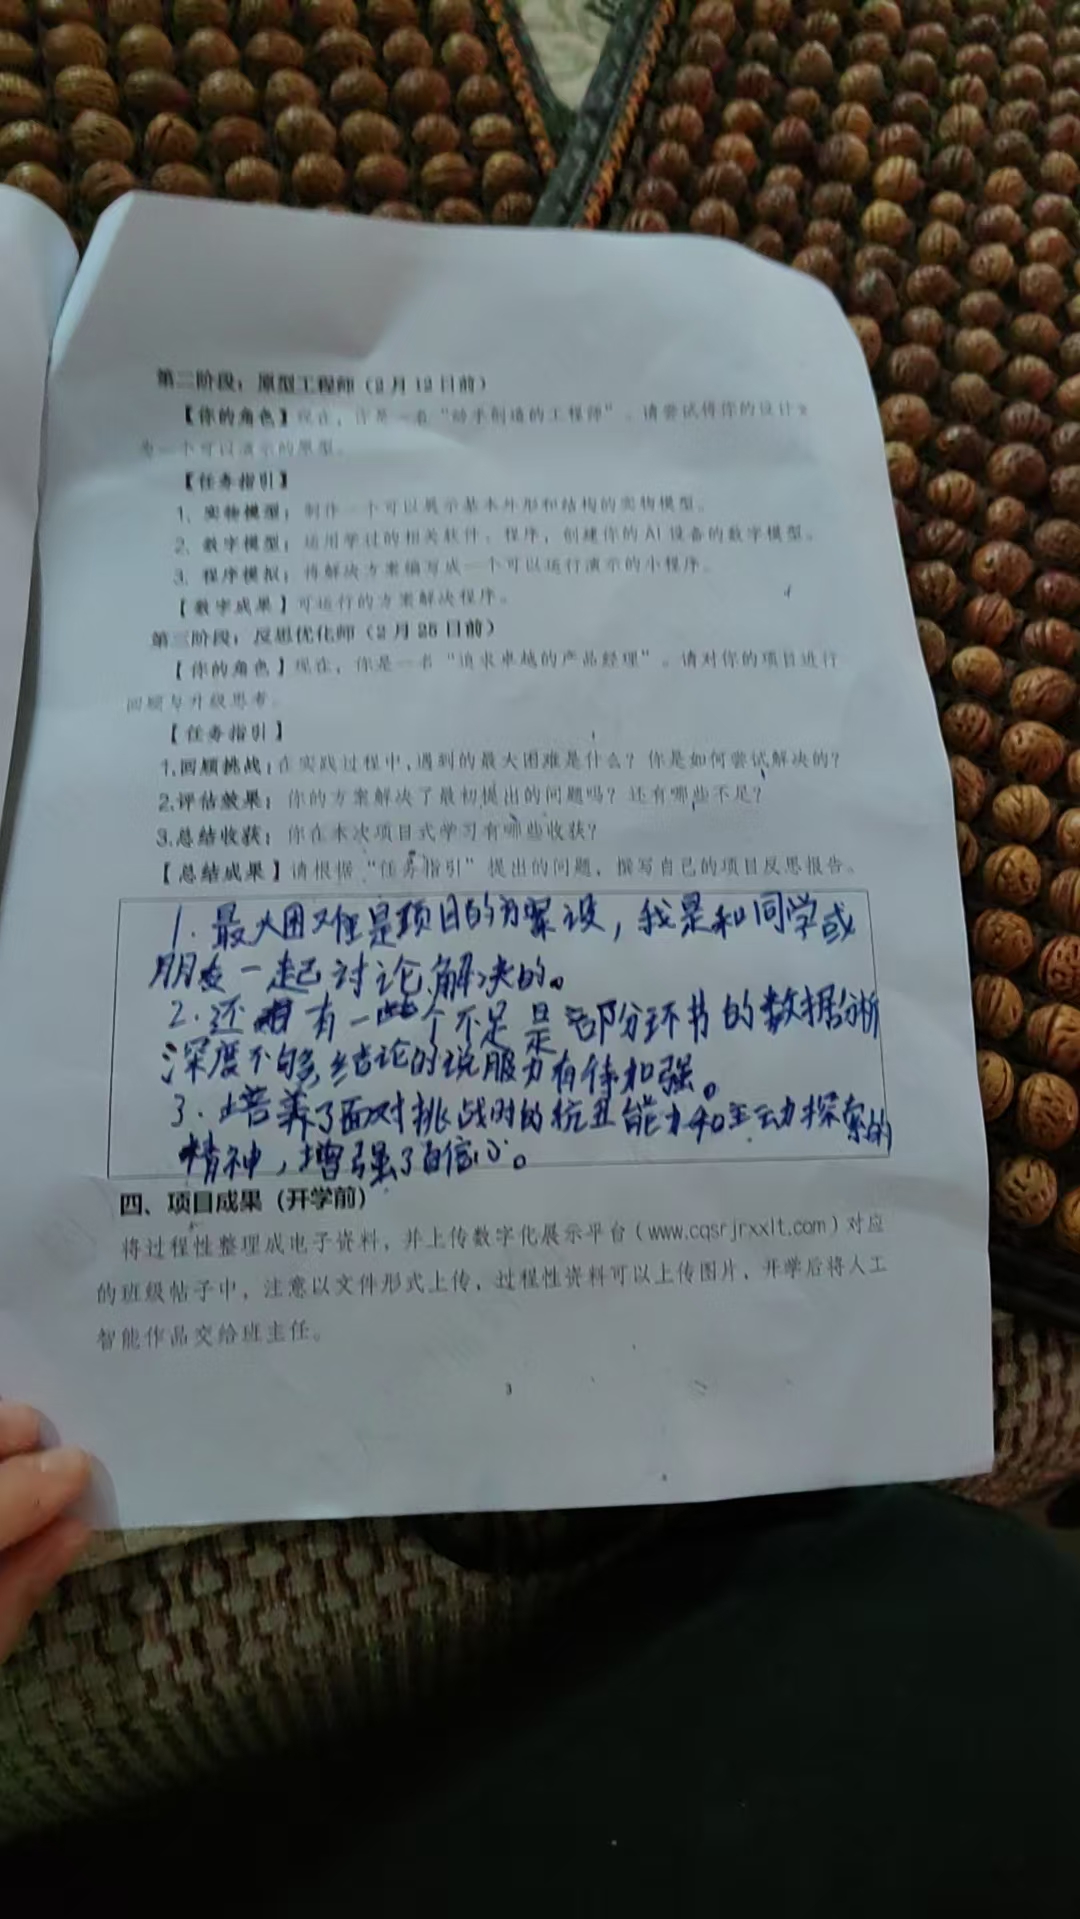 第二阶段：原型工程师（2月12日前）
【你的角色】现在，你是一名“动手创造的工程师”。请尝试将你的设计变
为一个可以演示的原型。
【任务指引】
1. 实物模型：制作一个可以展示基本外形和结构的实物模型。
2. 数字模型：运用学过的相关软件、程序，创建你的AI设备的数字模型。
3. 程序模拟：将解决方案编写成一个可以运行演示的小程序。
【数字成果】可运行的方案解决程序。
第三阶段：反思优化师（2月25日前）
【你的角色】现在，你是一名“追求卓越的产品经理”。请对你的项目进行
回顾与升级思考。
【任务指引】
1.回顾挑战：在实践过程中，遇到的最大困难是什么？你是如何尝试解决的？
2.评估效果：你的方案解决了最初提出的问题吗？还有哪些不足？
3.总结收获：你在本次项目式学习有哪些收获？
【总结成果】请根据“任务指引”提出的问题，撰写自己的项目反思报告。
1. 最大困难是项目的方案设，我是和同学或
朋友一起讨论解决的。
2. 还有一些个不足是部分环节的数据分析
深度不够，结论的说服力有待加强。
3. 培养了面对挑战时的抗丑能力和主动探索的
精神，增强了自信心。
四、项目成果（开学前）
将过程性整理成电子资料，并上传数字化展示平台（www.cqsrjrxxlt.com）对应
的班级帖子中，注意以文件形式上传，过程性资料可以上传图片，开学后将人工
智能作品交给班主任。
3